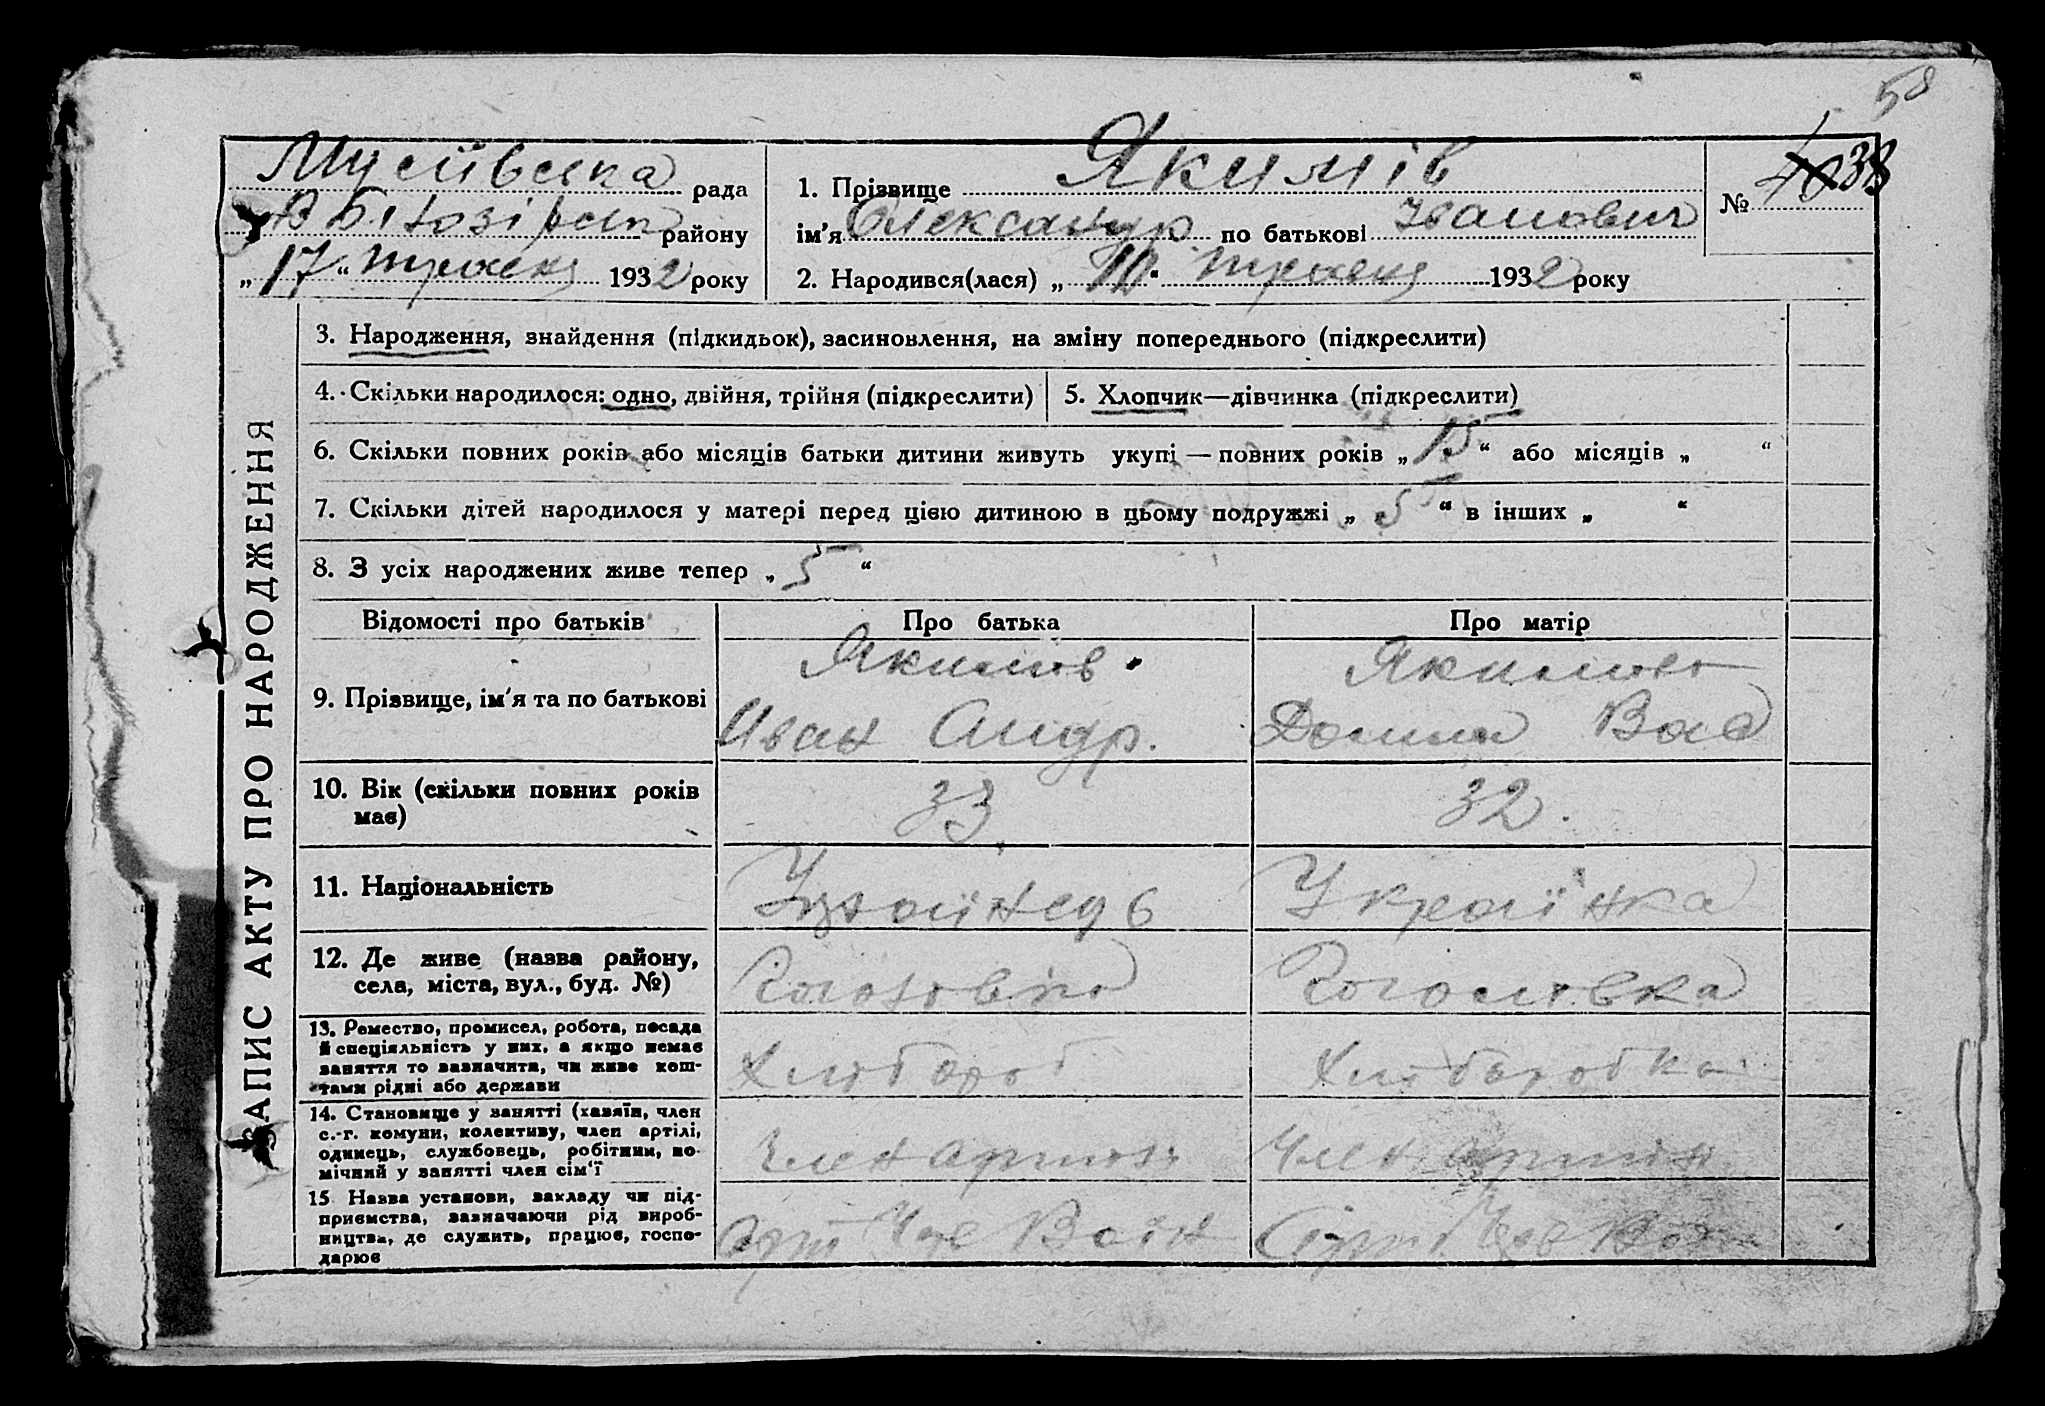 58
Мусіївська рада
В Білозірськ району
„17“ травня 1932 року
1. Прізвище Якимів
ім'я Олександр по батькові Іванович
2. Народився(лася) „10“ травня 1932 року
№ 38
ЗАПИС АКТУ ПРО НАРОДЖЕННЯ
3. Народження, знайдення (підкидьок), засиновлення, на зміну попереднього (підкреслити)
4. Скільки народилося: одно, двійня, трійня (підкреслити)
5. Хлопчик—дівчинка (підкреслити)
6. Скільки повних років або місяців батьки дитини живуть укупі — повних років „15“ або місяців „ “
7. Скільки дітей народилося у матері перед цією дитиною в цьому подружжі „5“ в інших „ “
8. З усіх народжених живе тепер „5“
Відомості про батьків
Про батька
Про матір
9. Прізвище, ім'я та по батькові
Якимов
Иван Андр.
Якимов
Домна Вас
10. Вік (скільки повних років
має)
33
32.
11. Національність
Українець
Українка
12. Де живе (назва району,
села, міста, вул., буд. №)
13. Ремество, промисел, робота, посада
й спеціяльність у них, а якщо немає
заняття то зазначити, чи живе кош-
тами рідні або держави
Хлібороб
Хліборобка
14. Становище у занятті (хазяїн, член
с.-г. комуни, колективу, член артілі,
одинець, службовець, робітник, по-
мічний у занятті член сім'ї
Член артілі
Член артілі
15. Назва установи, закладу чи під-
приємства, зазначаючи рід вироб-
ництва, де служить, працює, госпо-
дарює
Арт Чер
Арт Чер